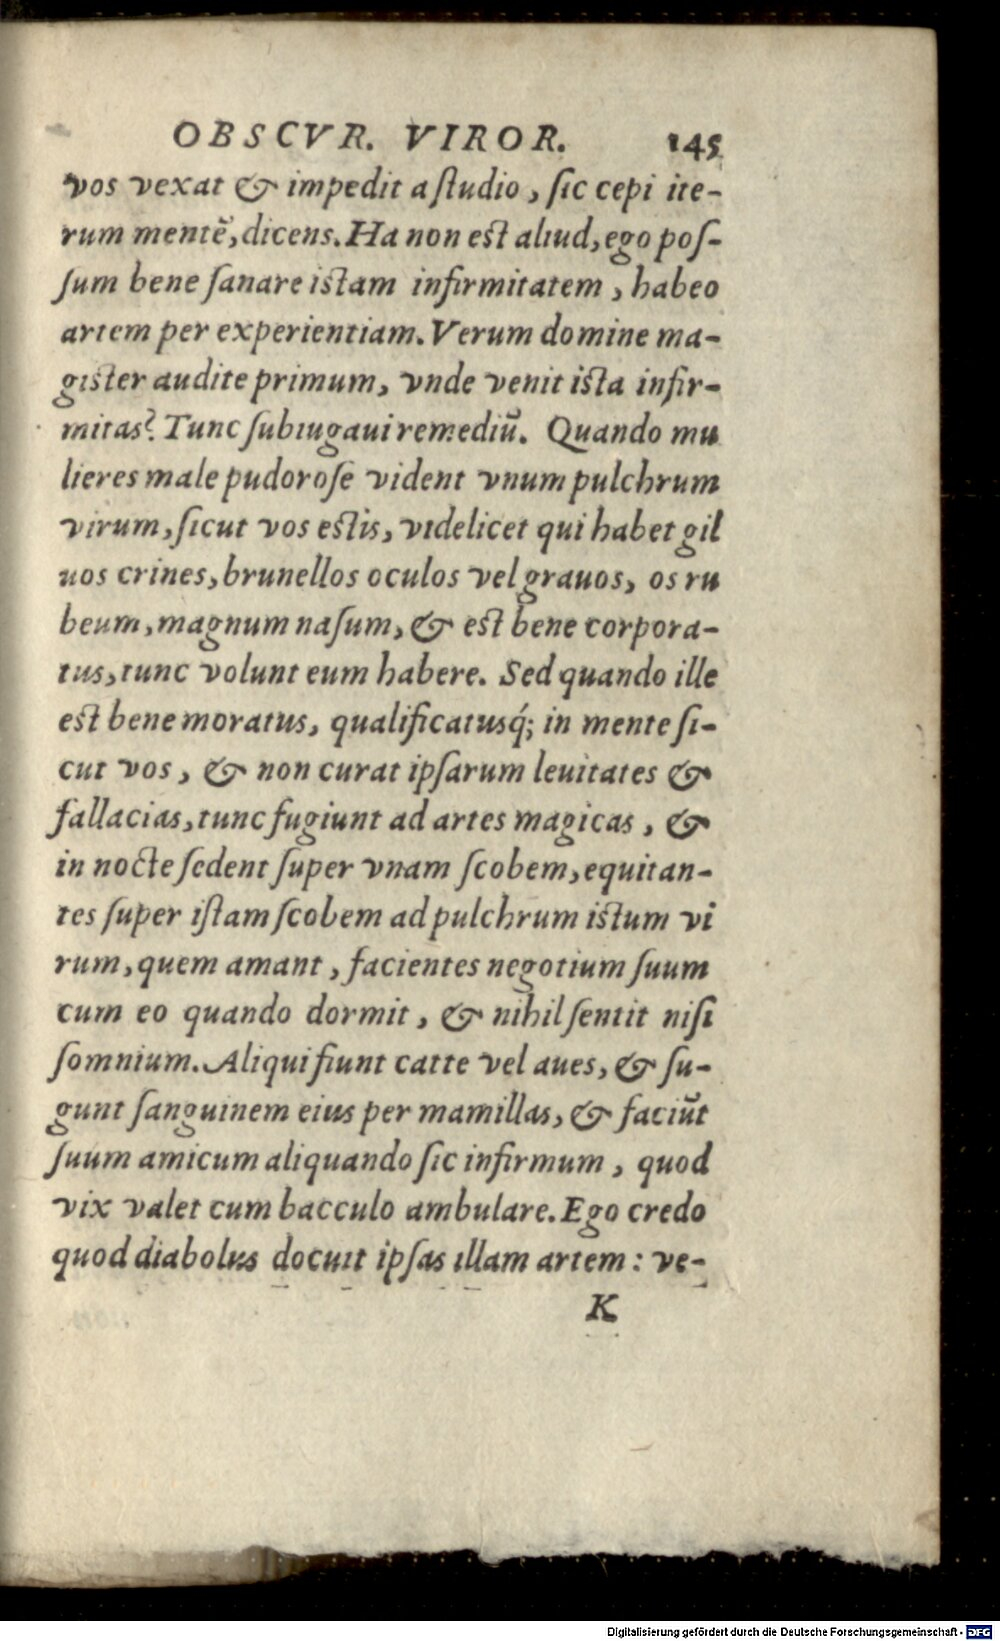 OBSCVR. VIROR. 145
vos vexat & impedit a ſtudio, ſic cepi ite-
rum mentē, dicens. Ha non est aliud, ego poſ-
ſum bene ſanare istam infirmitatem, habeo
artem per experientiam. Verum domine ma-
gister audite primum, vnde venit ista infir-
mitas? Tunc ſubiugaui remediū. Quando mu
lieres male pudoroſe vident vnum pulchrum
virum, ſicut vos estis, videlicet qui habet gil
uos crines, brunellos oculos vel grauos, os ru
beum, magnum naſum, & est bene corpora-
tus, tunc volunt eum habere. Sed quando ille
est bene moratus, qualificatusq́; in mente ſi-
cut vos, & non curat ipſarum leuitates &
fallacias, tunc fugiunt ad artes magicas, &
in nocte ſedent ſuper vnam ſcobem, equitan-
tes ſuper iſtam ſcobem ad pulchrum istum vi
rum, quem amant, facientes negotium ſuum
cum eo quando dormit, & nihil ſentit niſi
ſomnium. Aliqui fiunt catte vel aues, & ſu-
gunt ſanguinem eius per mamillas, & faciūt
ſuum amicum aliquando ſic infirmum, quod
vix valet cum bacculo ambulare. Ego credo
quod diabolus docuit ipſas illam artem: ve-
K
Digitalisierung gefördert durch die Deutsche Forschungsgemeinschaft - DFG